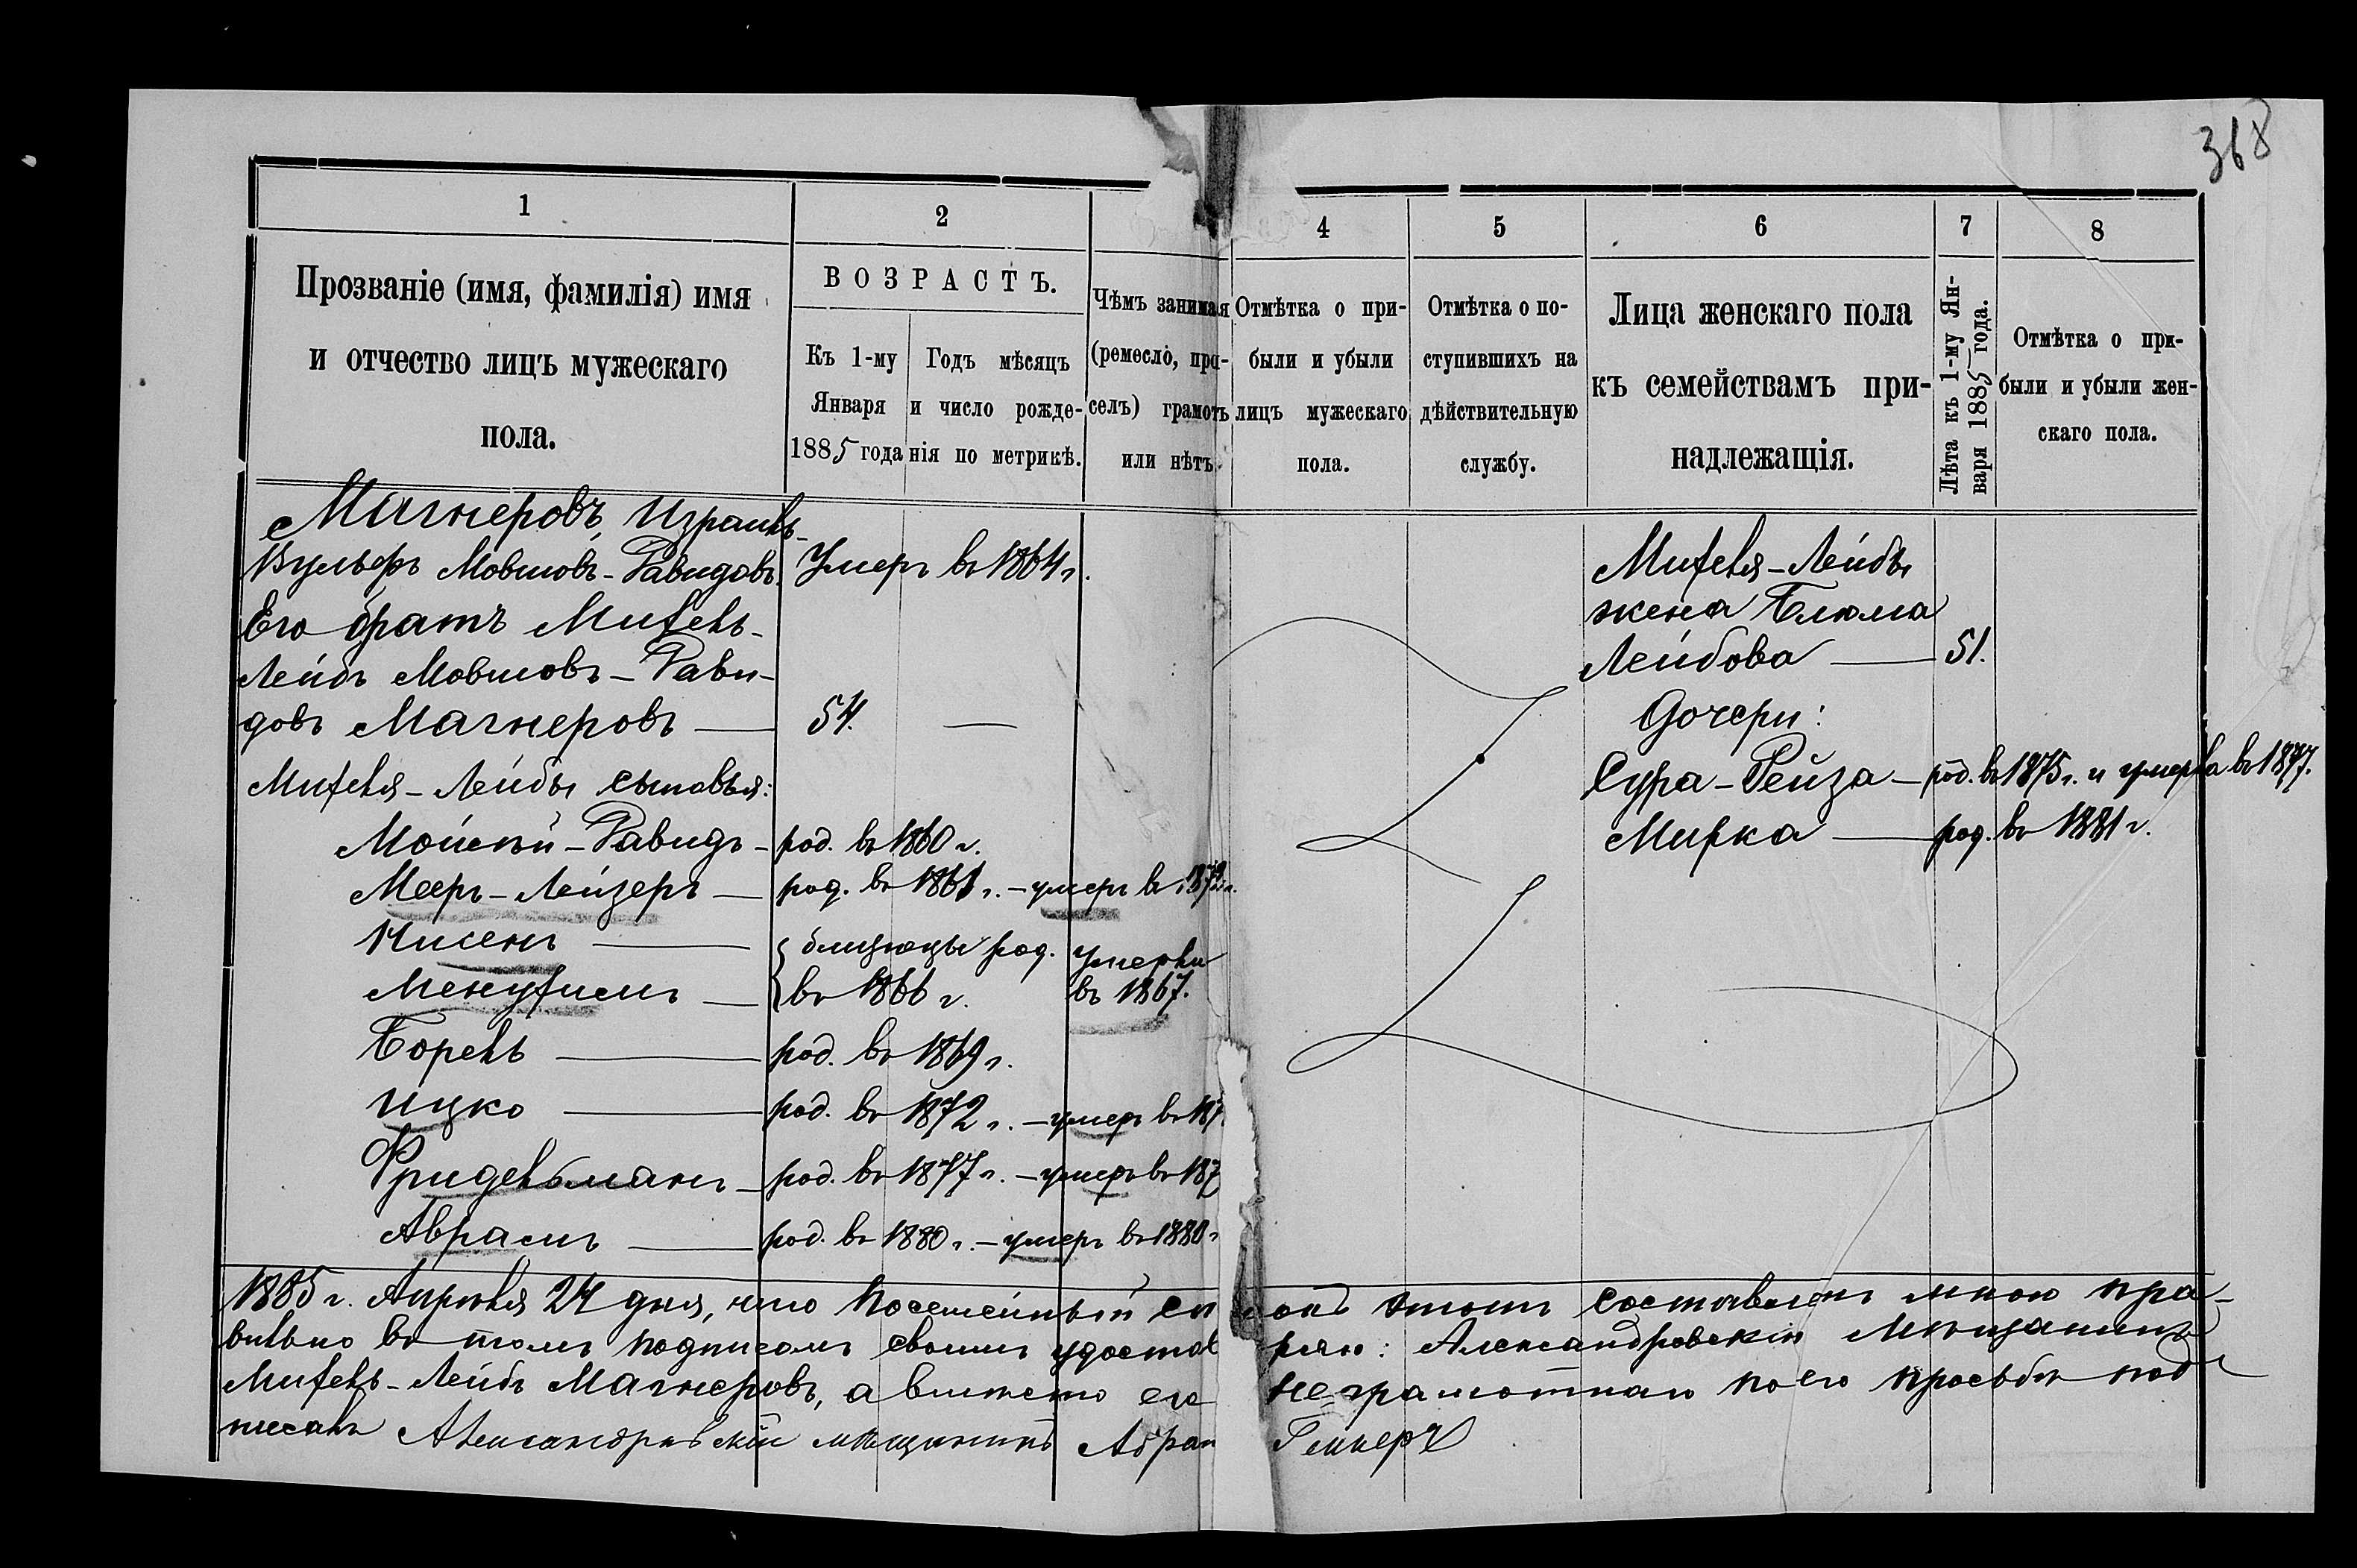 368
1
2
4
5
6
7
8
Прозваніе (имя, фамилія) имя
и отчество лицъ мужескаго
пола.
ВОЗРАСТЪ.
Къ 1-му
Января
1885 года
Годъ мѣсяцъ
и число рожде-
нія по метрикѣ.
Чѣмъ занимая
(ремесло, про-
селъ) грамотъ
или нѣтъ.
Отмѣтка о при-
были и убыли
лицъ мужескаго
пола.
Отмѣтка о по-
ступившихъ на
дѣйствительную
службу.
Лица женскаго пола
къ семействамъ при-
надлежащія.
Лѣта къ 1-му Ян-
варя 1885 года.
Отмѣтка о при-
были и убыли жен-
скаго пола.
Магнеровъ, Израиль-
Вульфъ Мовшовъ-Давидовъ. Умеръ въ 1864 г.
Его братъ Михель-
Лейбъ Мовшовъ-Дави-
довъ Магнеровъ — 54. —
Михеля-Лейбы сыновья:
Мойсей-Давидъ - род. въ 1860 г.
Мееръ-Лейзеръ — род. въ 1861 г. - умеръ въ
Нисенъ — близнецы род. умерли
Менухимъ — въ 1866 г. въ 1867.
Борель — род. въ 1869 г.
Ицко — род. въ 1872 г. - умеръ въ 187
Фридельманъ - род. въ 1877 г. - умеръ въ 187
Аврамъ — род. въ 1880 г. - умеръ въ 1880 г
Михеля-Лейбы
жена Блюма
Лейбова — 51.
Дочери:
Сура-Рейза - род. въ 1875 г. и умерла въ 1877.
Мирка — род. въ 1881 г.
1885 г. Апрѣля 24 дня, что посемейный сп сокъ этотъ составленъ мною пра-
вильно въ томъ подписомъ своимъ удостов ряю: Александровскій Мѣщанинъ
Михель-Лейбъ Магнеровъ, а вмѣсто его неграмотнаго по его просьбѣ под
писалъ Александровскій мѣщанинъ Абрам